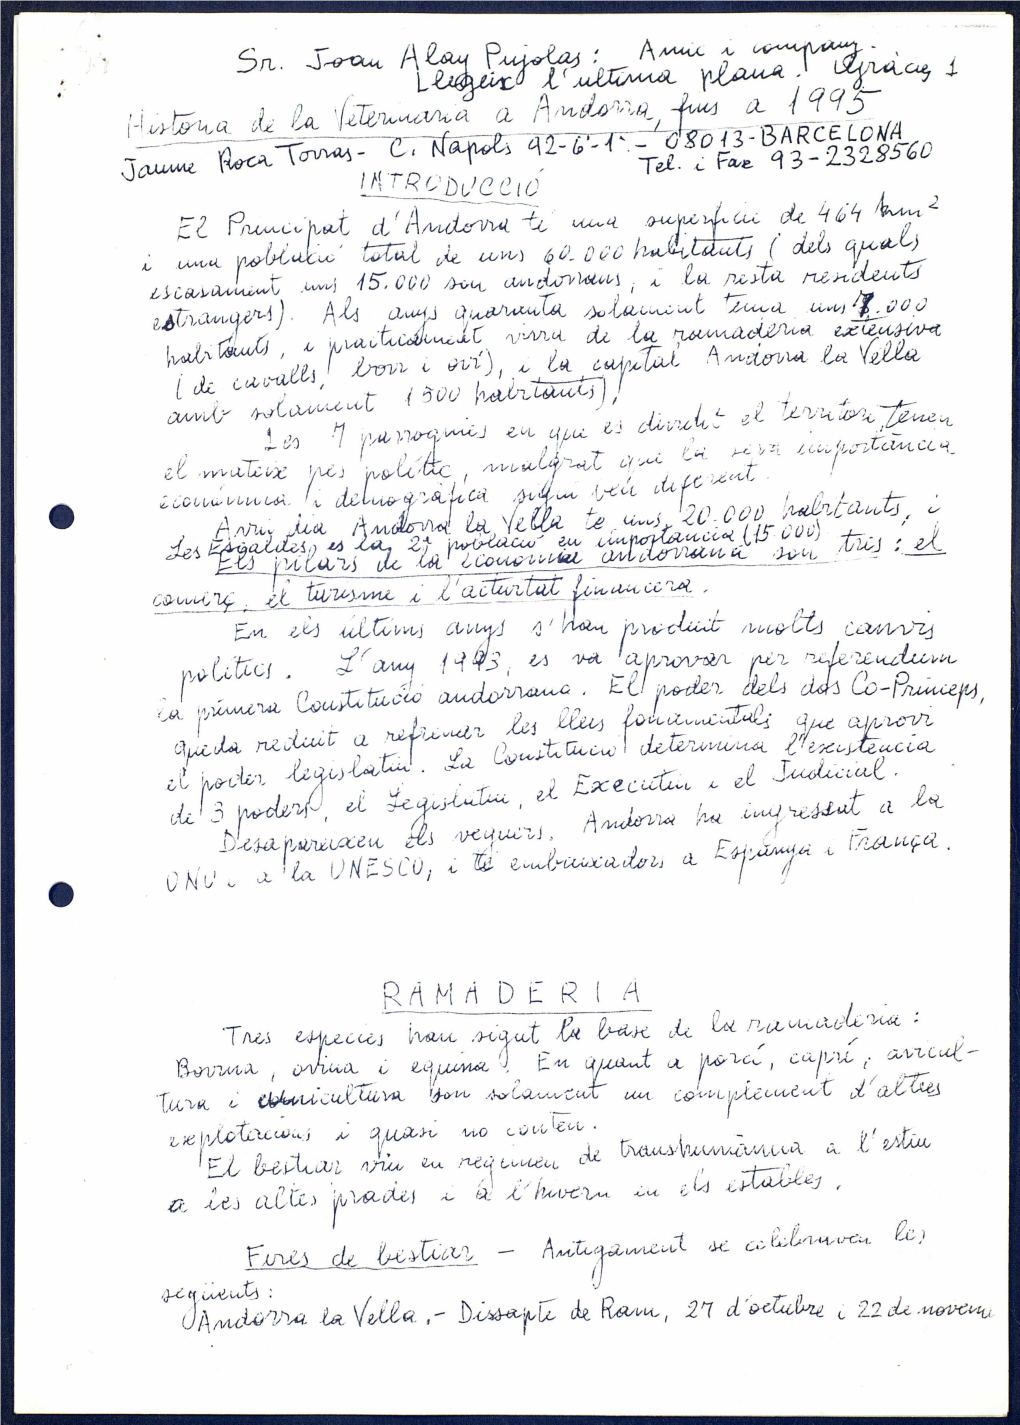 Sr. Joan Alay Pujolas: Amic i company.
Llegeix l'ultima plana. Gràcies 1
Historia de la Veterinaria a Andorra, fins a 1995
Jaume Roca Torras - C. Napols 92-6è-1ª - 08013-BARCELONA
Tel. i Fax 93-2328560
INTRODUCCIÓ
El Principat d'Andorra té una superficie de 464 km²
i una població total de uns 60.000 habitants (dels quals
escasament uns 15.000 son andorrans, i la resta residents
estrangers). Als anys quaranta solament tenia uns 7.000
habitants, i practicament vivia de la ramaderia extensiva
(de cavalls, bovi i oví), i la capital Andorra la Vella
amb solament 1500 habitants).
Les 7 parroquies en que es divideix el territori, tenen
el mateix pes polític, malgrat que la seva importància
econòmica i demogràfica sigui ven diferent.
Avui dia Andorra la Vella te uns 20.000 habitants, i
Les Escaldes, es la 2ª població en importancia (15.000)
Els pilars de la economia andorrana son tres: el
comerç, el turisme i l'activitat financera.
En els últims anys s'han produit molts canvis
politics. L'any 1993, es va aprovar per referendum
la primera Constitució andorrana. El poder dels dos Co-Princeps,
queda reduit a refrener les lleis fonamentals que aprovi
el poder legislatiu. La Constitució determina l'existencia
de 3 poders, el Legislatiu, el Executiu i el Judicial.
Desapareixen els veguers. Andorra ha ingressat a la
ONU i a la UNESCO, i té embaixadors a Espanya i França.
RAMADERIA
Tres especies han sigut la base de la ramaderia:
Bovina, ovina i equina. En quant a porcí, caprí, avicul-
tura i cunicultura son solament un complement d'altres
explotacions i quasi no conten.
El bestiar viu en regimen de transhumància a l'estiu
a les altes prades i a l'hivern en els estables.
Fires de bestiar - Antigament se celebraven les
següents:
Andorra la Vella. - Dissapte de Ram, 27 d'octubre i 22 de novem